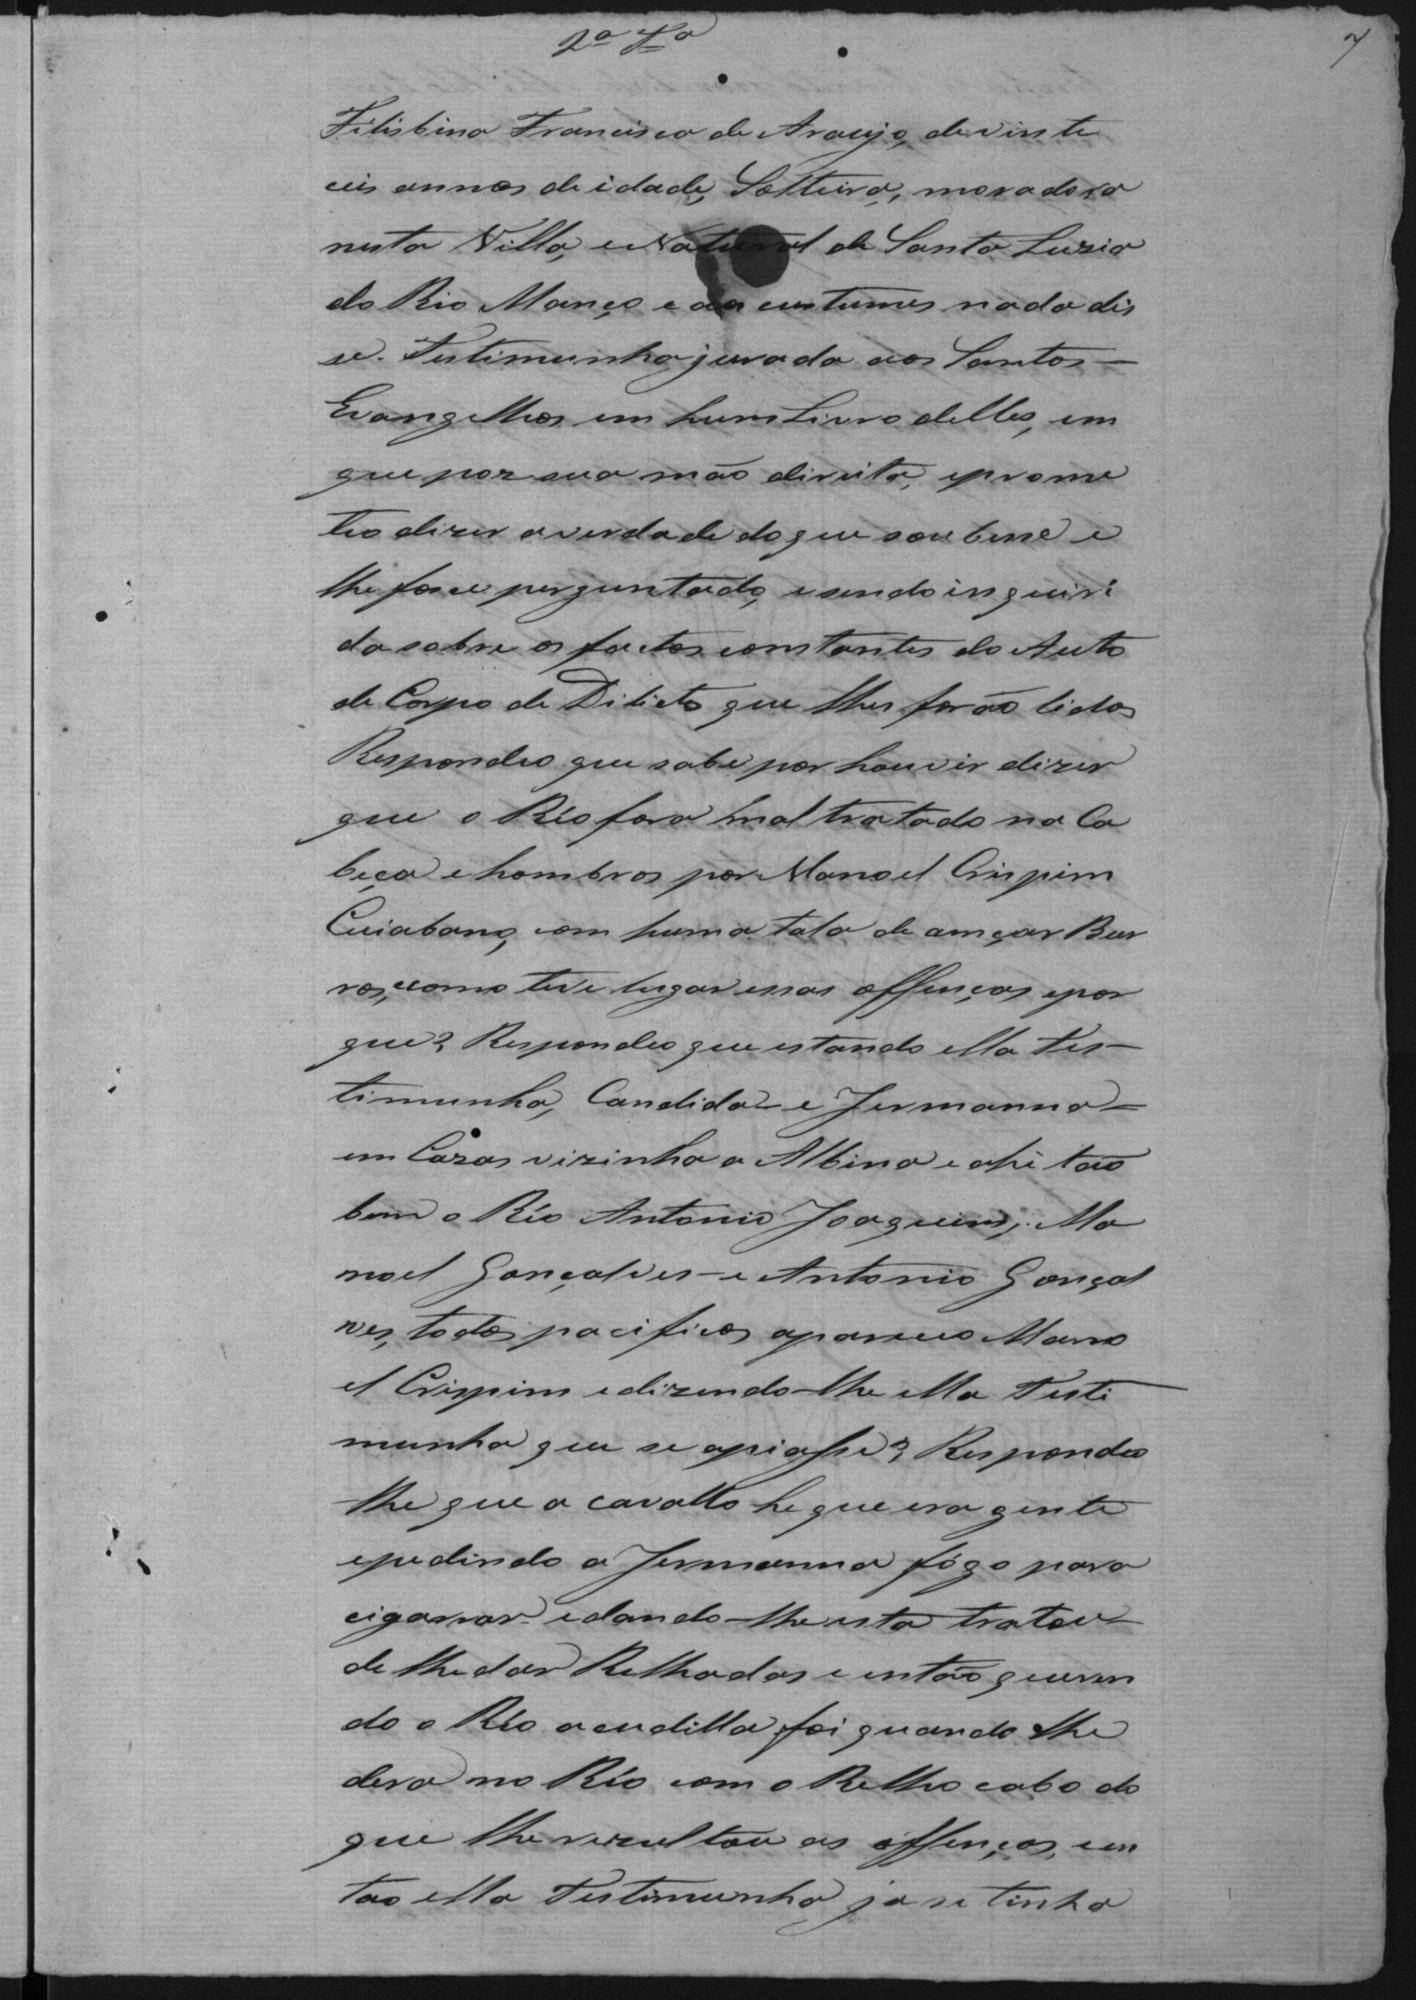 2ª Tª
7
Filisbina Francisca de Araujo, de vinte
ceis annos de idade, Solteira, moradora
nesta Villa, e Natural de Santa Luzia
do Rio Manço e aos custumes nada dis
se. Testimunha jurada aos Santos
Evangelhos em hum Livro delles, em
que poz sua mão direita, eprome
teo dizer averdade doque soubesse e
lhe fosse perguntado, esendo inquiri
da sobre os factos constantes do Auto
de Corpo de Dilicto que lhes forão lidos
Respondeo que sabe por houvir dizer
que o Réo fora mal tratado na Ca
beça ehombros por Manoel Crispim
Cuiabano, com huma tala de amçar Bur
ros, ecomo teve lugar essas offenças epor
que? Respondeo que estando ella Tes-
timunha, Candida e Jermanna
em Cazas vizinha a Albina e ahi tão
bem o Réo Antonio Joaquim, Ma
noel Gonçalves e Antonio Gonçal
ves, todos pacificos apareceo Mano
el Crispim edizendo-lhe ella Testi
munha que se apiasse? Respondeo
lhe que a cavallo he que era gente
epedindo a Jermanna fógo para
cigarrar edando-lhe esta tratou
de lhe dar Relhadas e então queren
do o Réo acudilla foi quando lhe
dera no Réo com o Relho cabo do
que lhe rezultou as offenças, en
tao ella Testimunha ja se tinha